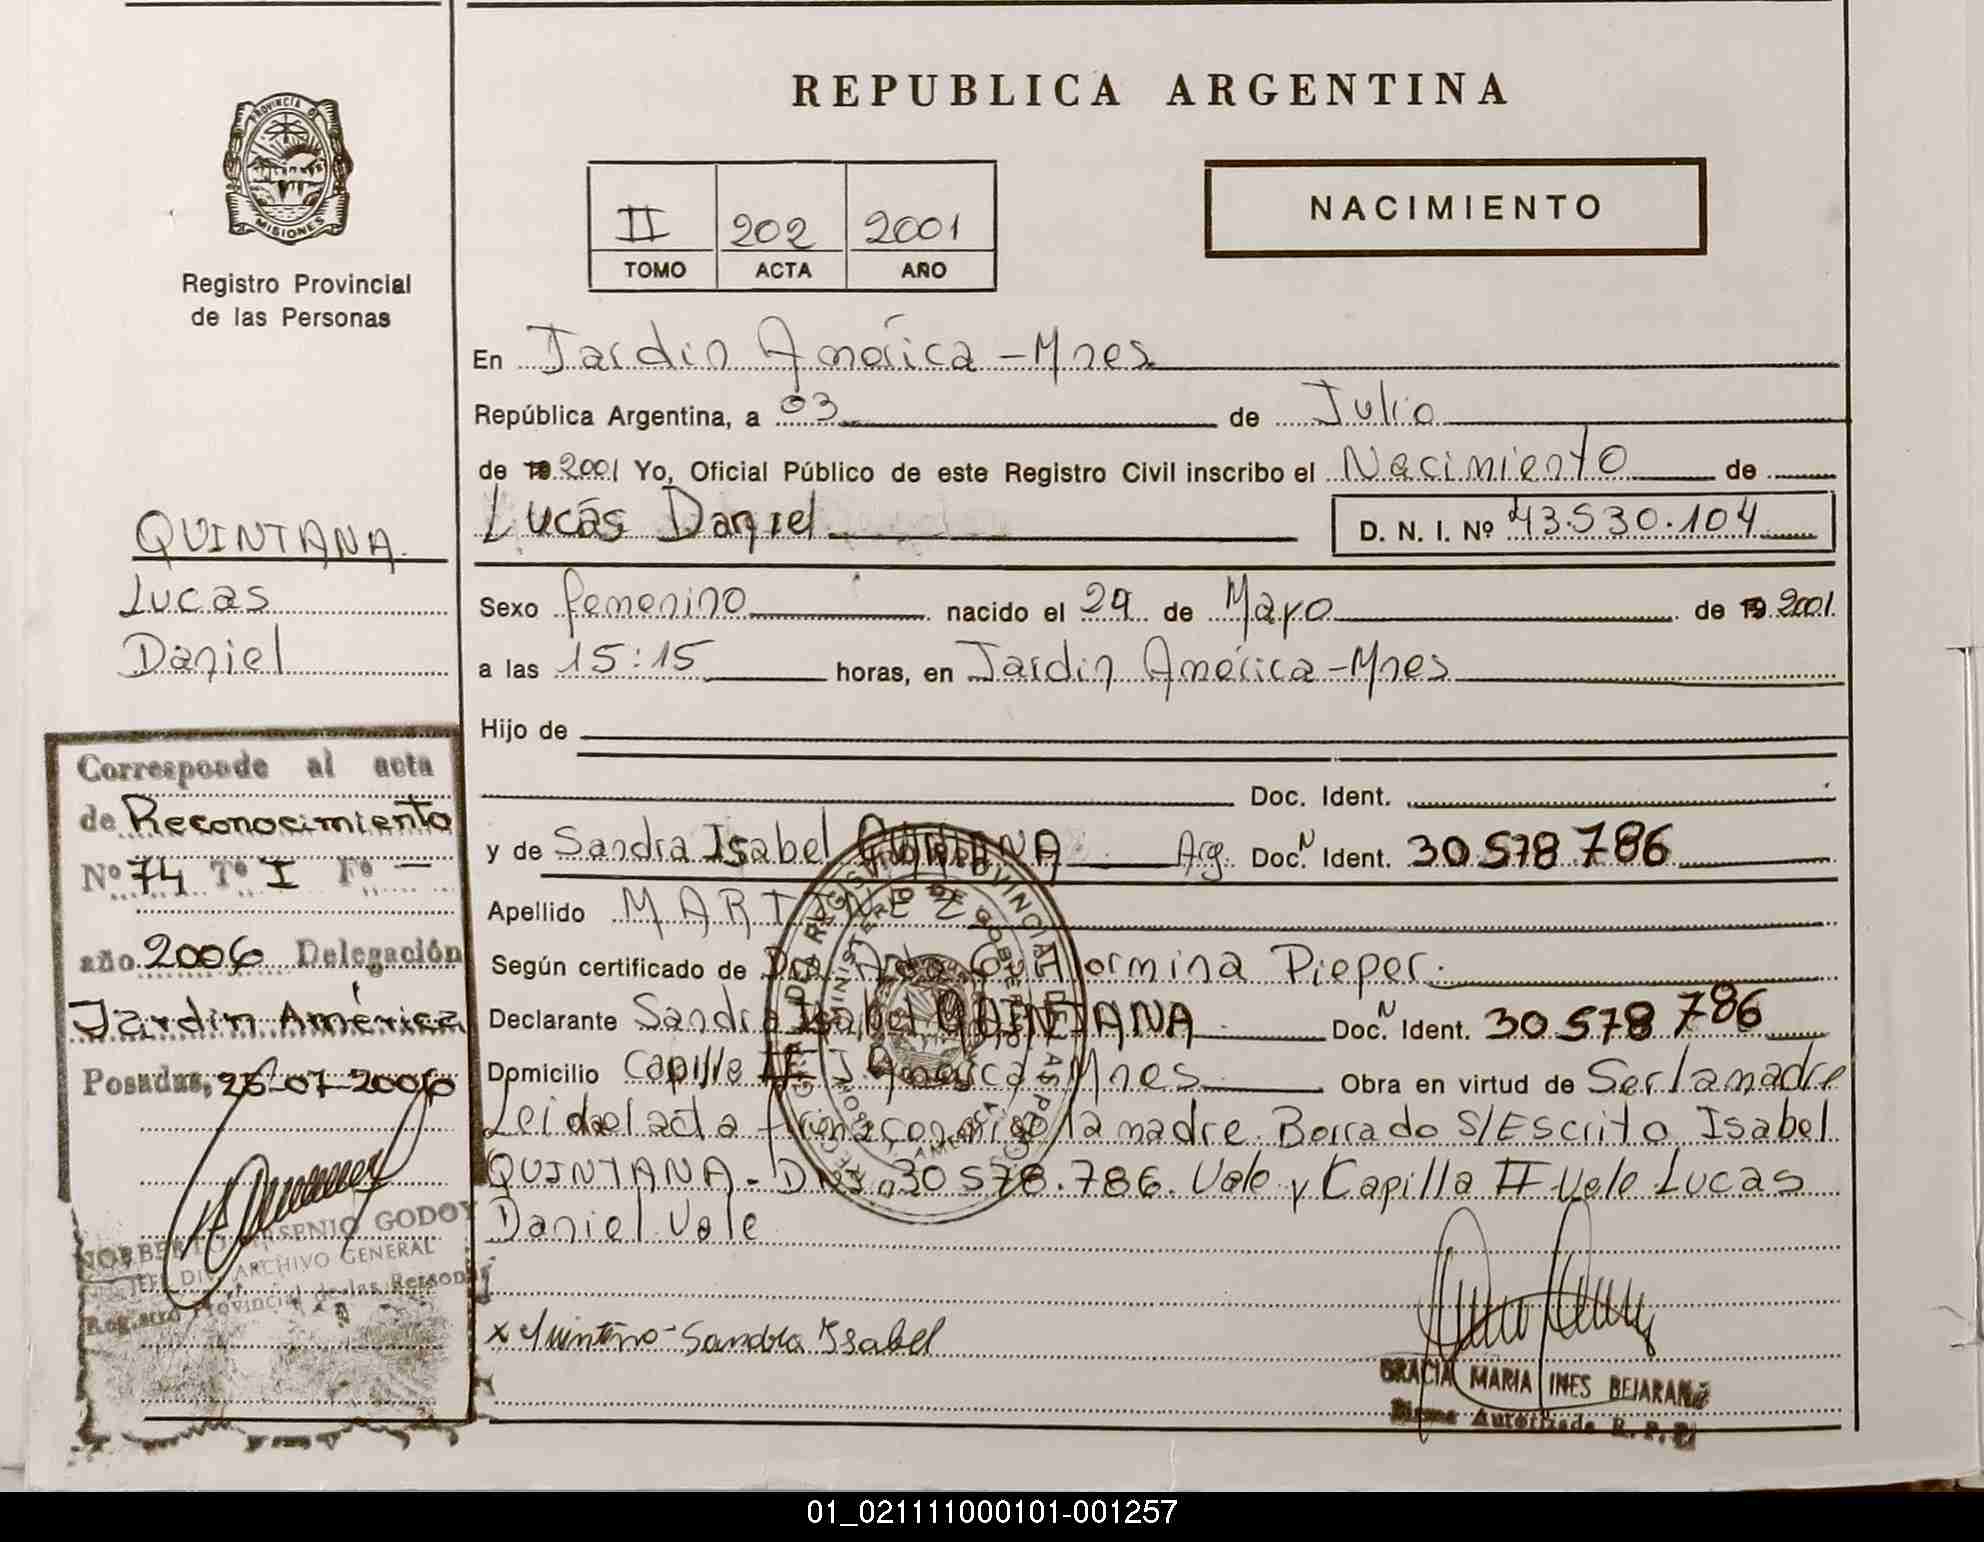 REPUBLICA ARGENTINA
PROVINCIA DE
MISIONES
Registro Provincial
de las Personas
II 202 2001
TOMO ACTA AÑO
NACIMIENTO
En Jardín América - Mnes
República Argentina, a 03 de Julio
de 19 2001 Yo, Oficial Público de este Registro Civil inscribo el Nacimiento de
Lucas Daniel D. N. I. Nº 43.530.104
QUINTANA
Lucas
Daniel
Sexo femenino nacido el 29 de Mayo de 19 2001
a las 15:15 horas, en Jardín América - Mnes
Hijo de
Doc. Ident.
y de Sandra Isabel QUINTANA Arg. Doc. N Ident. 30 578 786
Apellido MARTINEZ
Según certificado de Dra. Guillermina Pieper.
Declarante Sandra Isabel QUINTANA Doc. N Ident. 30 578 786
Domicilio Capilla II J. América Mnes Obra en virtud de Ser la madre
Leida el acta firma conmigo la madre. Borrado S/Escrito Isabel
QUINTANA - DNI 30 578.786. Vale y Capilla II Vale Lucas
Daniel Vale
x Quintana Sandra Isabel
GRACIA MARIA INES BEJARANO
Firma Autorizada R. P. P.
Corresponde al acta
de Reconocimiento
Nº 74 Tº I Fº —
año 2006 Delegación
Jardín América
Posadas, 25-07-2006
NORBERTO ARSENIO GODOY
JEFE DIV. ARCHIVO GENERAL
Registro Provincial de las Personas
01_021111000101-001257